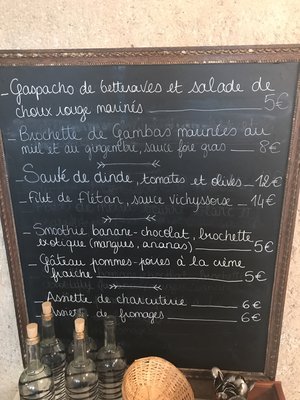 _Gaspacho de betteraves et salade de
choux rouge marinés ____ 5€
_Brochette de Gambas marinées au
miel et au gingembre, sauce foie gras __ 8€
_Sauté de dinde, tomates et olives_12€
_Filet de Flétan, sauce vichyssoise_14€
_Smoothie banane-chocolat, brochette
exotique (mangues, ananas) ____ 5€
_Gâteau pommes-poires à la crème
fraîche ____ 5€
_Assiette de charcuterie ____ 6€
_Assiette de fromages ____ 6€